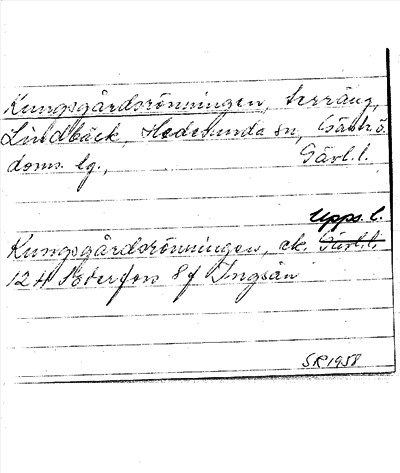 Kungsgårdsrönningen, terräng,
Lindbäck, Hedesunda sn, Gästri-
doms. lg., Gävl. l.
Upps. l.
Kungsgårdsrönningen, ek. Gävl. l.
12 H Söderfors 8 f Ingsån
SR 1958